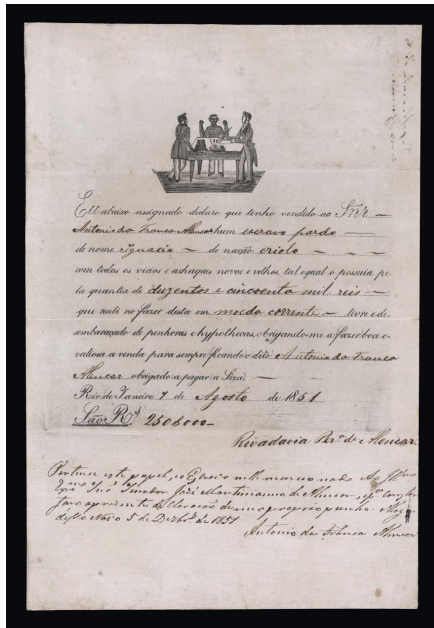 Eu abaixo assignado declaro que tenho vendido ao Snr.
Antonio da Franca Alencar hum escravo pardo
de nome Ignacio de nação criolo
com todos os vicios e achaques novos e velhos, tal equal o possuia pe-
la quantia de duzentos e cincoenta mil reis
que recebi ao fazer desta em moeda corrente livre e de-
sembaraçado de penhoras e hypothecas, obrigando-me a fazer boa e
valiosa a venda para sempre ficando o dito Antonio da Franca
Alencar obrigado a pagar a Siza.
Rio de Janeiro 7 de Agosto de 1851
São Rs. 250$000
Rivadavia Per.ª de Alencar.
Pertence este papel, e o Escravo
Senador José Martiniano de Alencar
faço a presente declaração de meu proprio punho.
5 de 1851
Antonio da Franca Alencar